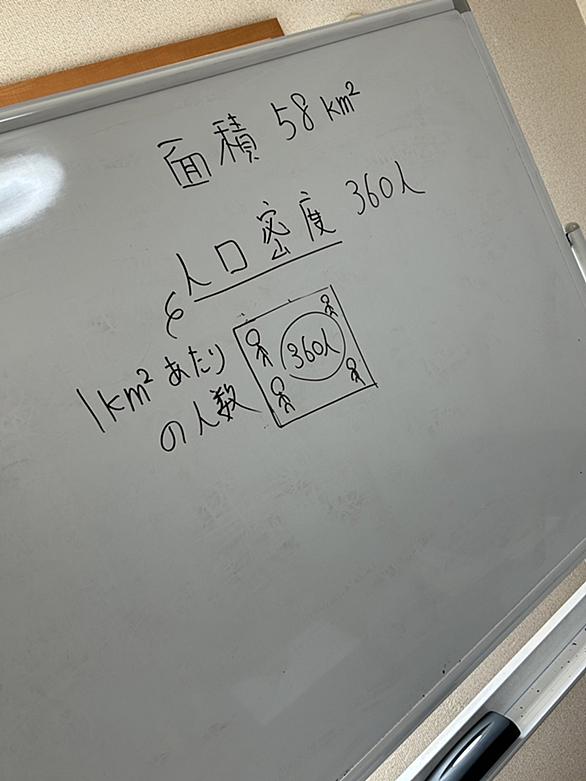 面積 58 km²
人口密度 360人
1km² あたり
の人数
360人